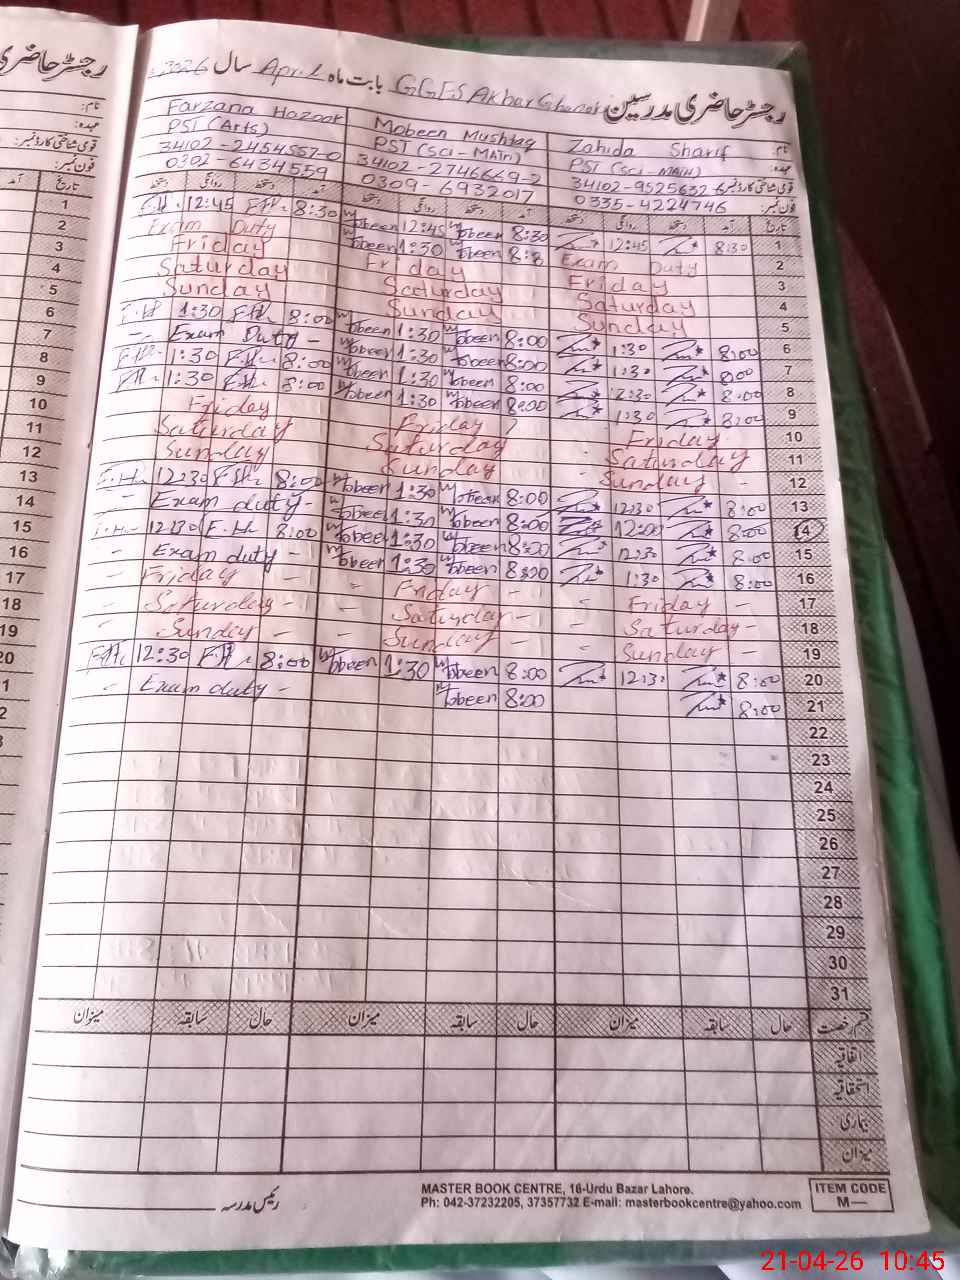 رجسٹر حاضری مدرسین GGES بابت ماہ April سال 2026
نام: Zahida Sharif Mobeen Mushtaq Farzana
عہدہ: PST (Sci-MATH) PST (Sci-MATH) PST (Arts)
قومی شناختی کارڈ نمبر: 34102-9525632-6 34102-2746669-2 34102-2454557-0
فون نمبر: 0335-4224746 0309-6932017 0302-6434559
تاریخ آمد دستخط روانگی دستخط آمد دستخط روانگی دستخط آمد دستخط روانگی دستخط
1 8:30 12:45 8:30 Mobeen 12:45 Mobeen 8:30 F.H. 12:45 F.H.
2 Exam Duty Mobeen 1:30 Mobeen Exam Duty
3 Friday Friday Friday
4 Saturday Saturday Saturday
5 Sunday Sunday Sunday
6 8:00 1:30 8:00 Mobeen 1:30 Mobeen 8:00 F.H. 1:30 F.H.
7 8:00 1:30 8:00 Mobeen 1:30 Mobeen - Exam Duty -
8 8:00 8:00 Mobeen 1:30 Mobeen 8:00 F.H. 1:30 F.H.
9 8:00 1:30 8:00 Mobeen 1:30 Mobeen 8:00 F.H. 1:30 F.H.
10 Friday Friday Friday
11 Saturday Saturday Saturday
12 Sunday Sunday Sunday
13 8:00 12:30 8:00 Mobeen 1:30 Mobeen 8:00 F.H. 12:30 F.H.
14 8:00 12:00 8:00 Mobeen 1:30 Mobeen - Exam duty -
15 8:00 12:30 8:00 Mobeen 1:30 Mobeen 8:00 F.H. 12:30 F.H.
16 8:00 1:30 8:00 Mobeen 1:30 Mobeen - Exam duty -
17 - Friday - Friday - Friday -
18 - Saturday - Saturday - Saturday -
19 - Sunday - Sunday - Sunday -
20 8:00 12:30 8:00 Mobeen 1:30 Mobeen 8:00 F.H. 12:30 F.H.
21 8:00 8:00 Mobeen - Exam duty -
22
23
24
25
26
27
28
29
30
31
قسم رخصت حال سابقہ میزان حال سابقہ میزان حال سابقہ میزان
اتفاقیہ
استحقاقیہ
بیماری
میزان
رئیس مدرسہ
MASTER BOOK CENTRE, 16-Urdu Bazar Lahore.
Ph: 042-37232205, 37357732 E-mail: masterbookcentre@yahoo.com
ITEM CODE
M—
21-04-26 10:45